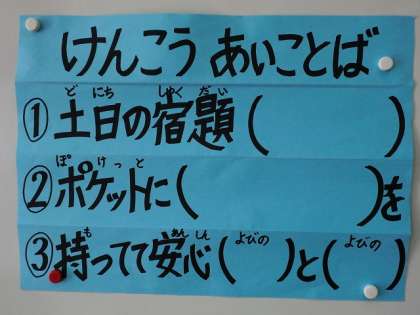 けんこう あいことば
①土日の宿題(　　　)
どにちしゅくだい
②ポケットに(　　　)を
ぽけっと
③持ってて安心(よびの　)と(よびの　)
もあんしん